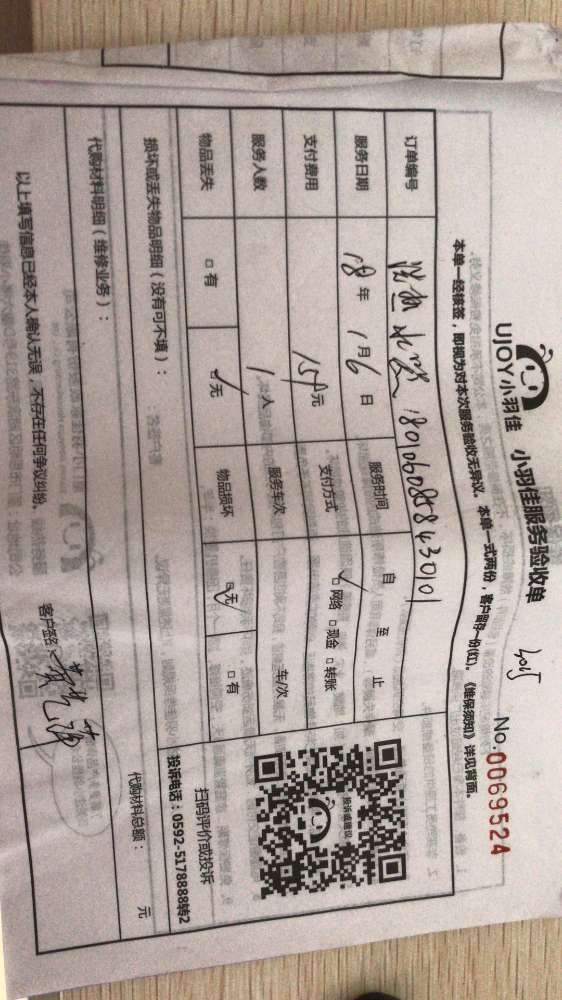 UJOY小羽佳 小羽佳服务验收单 No.0069524
本单一经核签，即视为对本次服务验收无异议。 本单一式两份，客户留存一份(红)。《维保须知》详见背面。
订单编号 1801060858430101
服务日期 18年 1月6日 服务时间 自 至 止
支付费用 159元 支付方式 □网络 □现金 □转账
服务人数 1人 服务车次 车/次
物品丢失 □有 □无 物品损坏 □无 □有
投诉或建议
扫码评价或投诉
投诉电话：0592-5178888转2
损坏或丢失物品明细（没有可不填）：
代购材料明细（维修业务）： 代购材料总额： 元
以上填写信息已经本人确认无误，不存在任何争议纠纷。 客户签名：